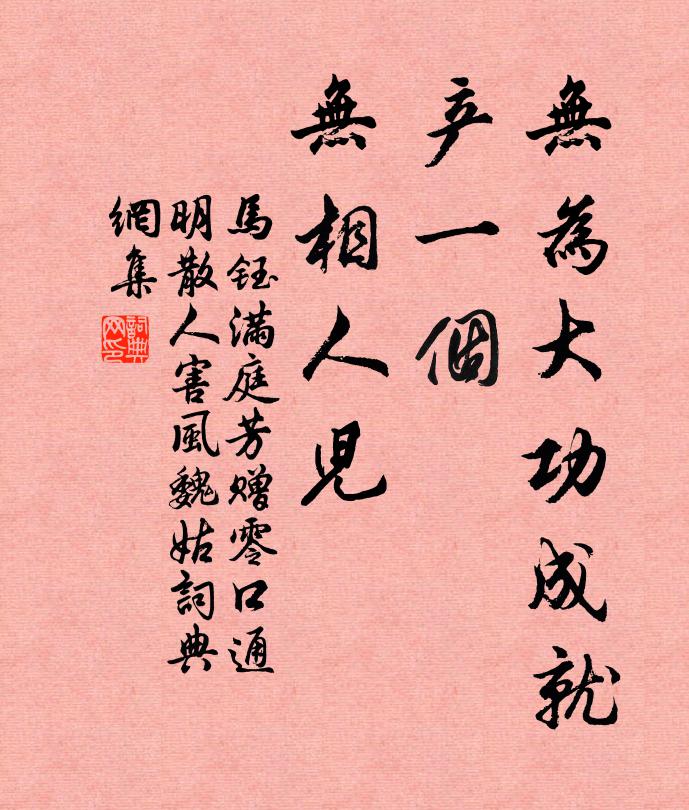 無為大功成就
产一個
無相人児
馬鈺滿庭芳赠零口通
明散人害風魏姑詞典
網集
詞典網印